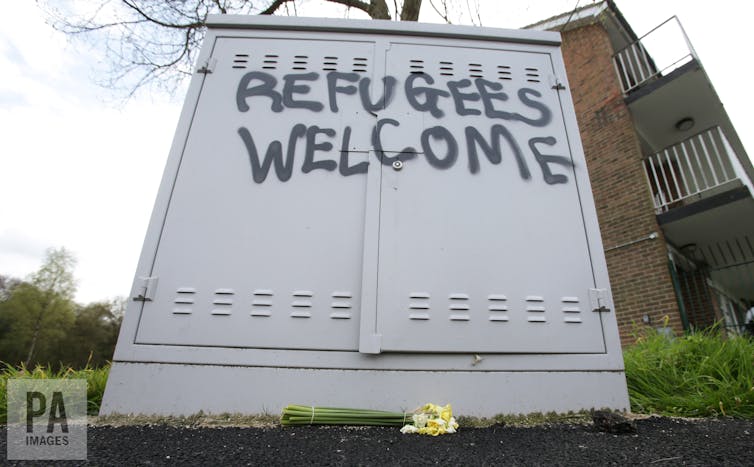 REFUGEES
WELCOME
PA
IMAGES